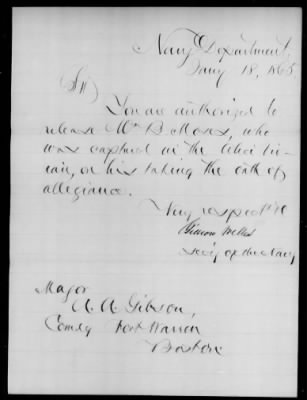 Navy Department,
Jany 18, 1865
Sir
You are authorized to
release Wm B Moses, who
was captured in the
on his taking the oath of
allegiance.
Very respect'ly
Gideon Welles
Sec'y of the Navy
Major
A A Gibson,
Comdg Fort Warren
Boston